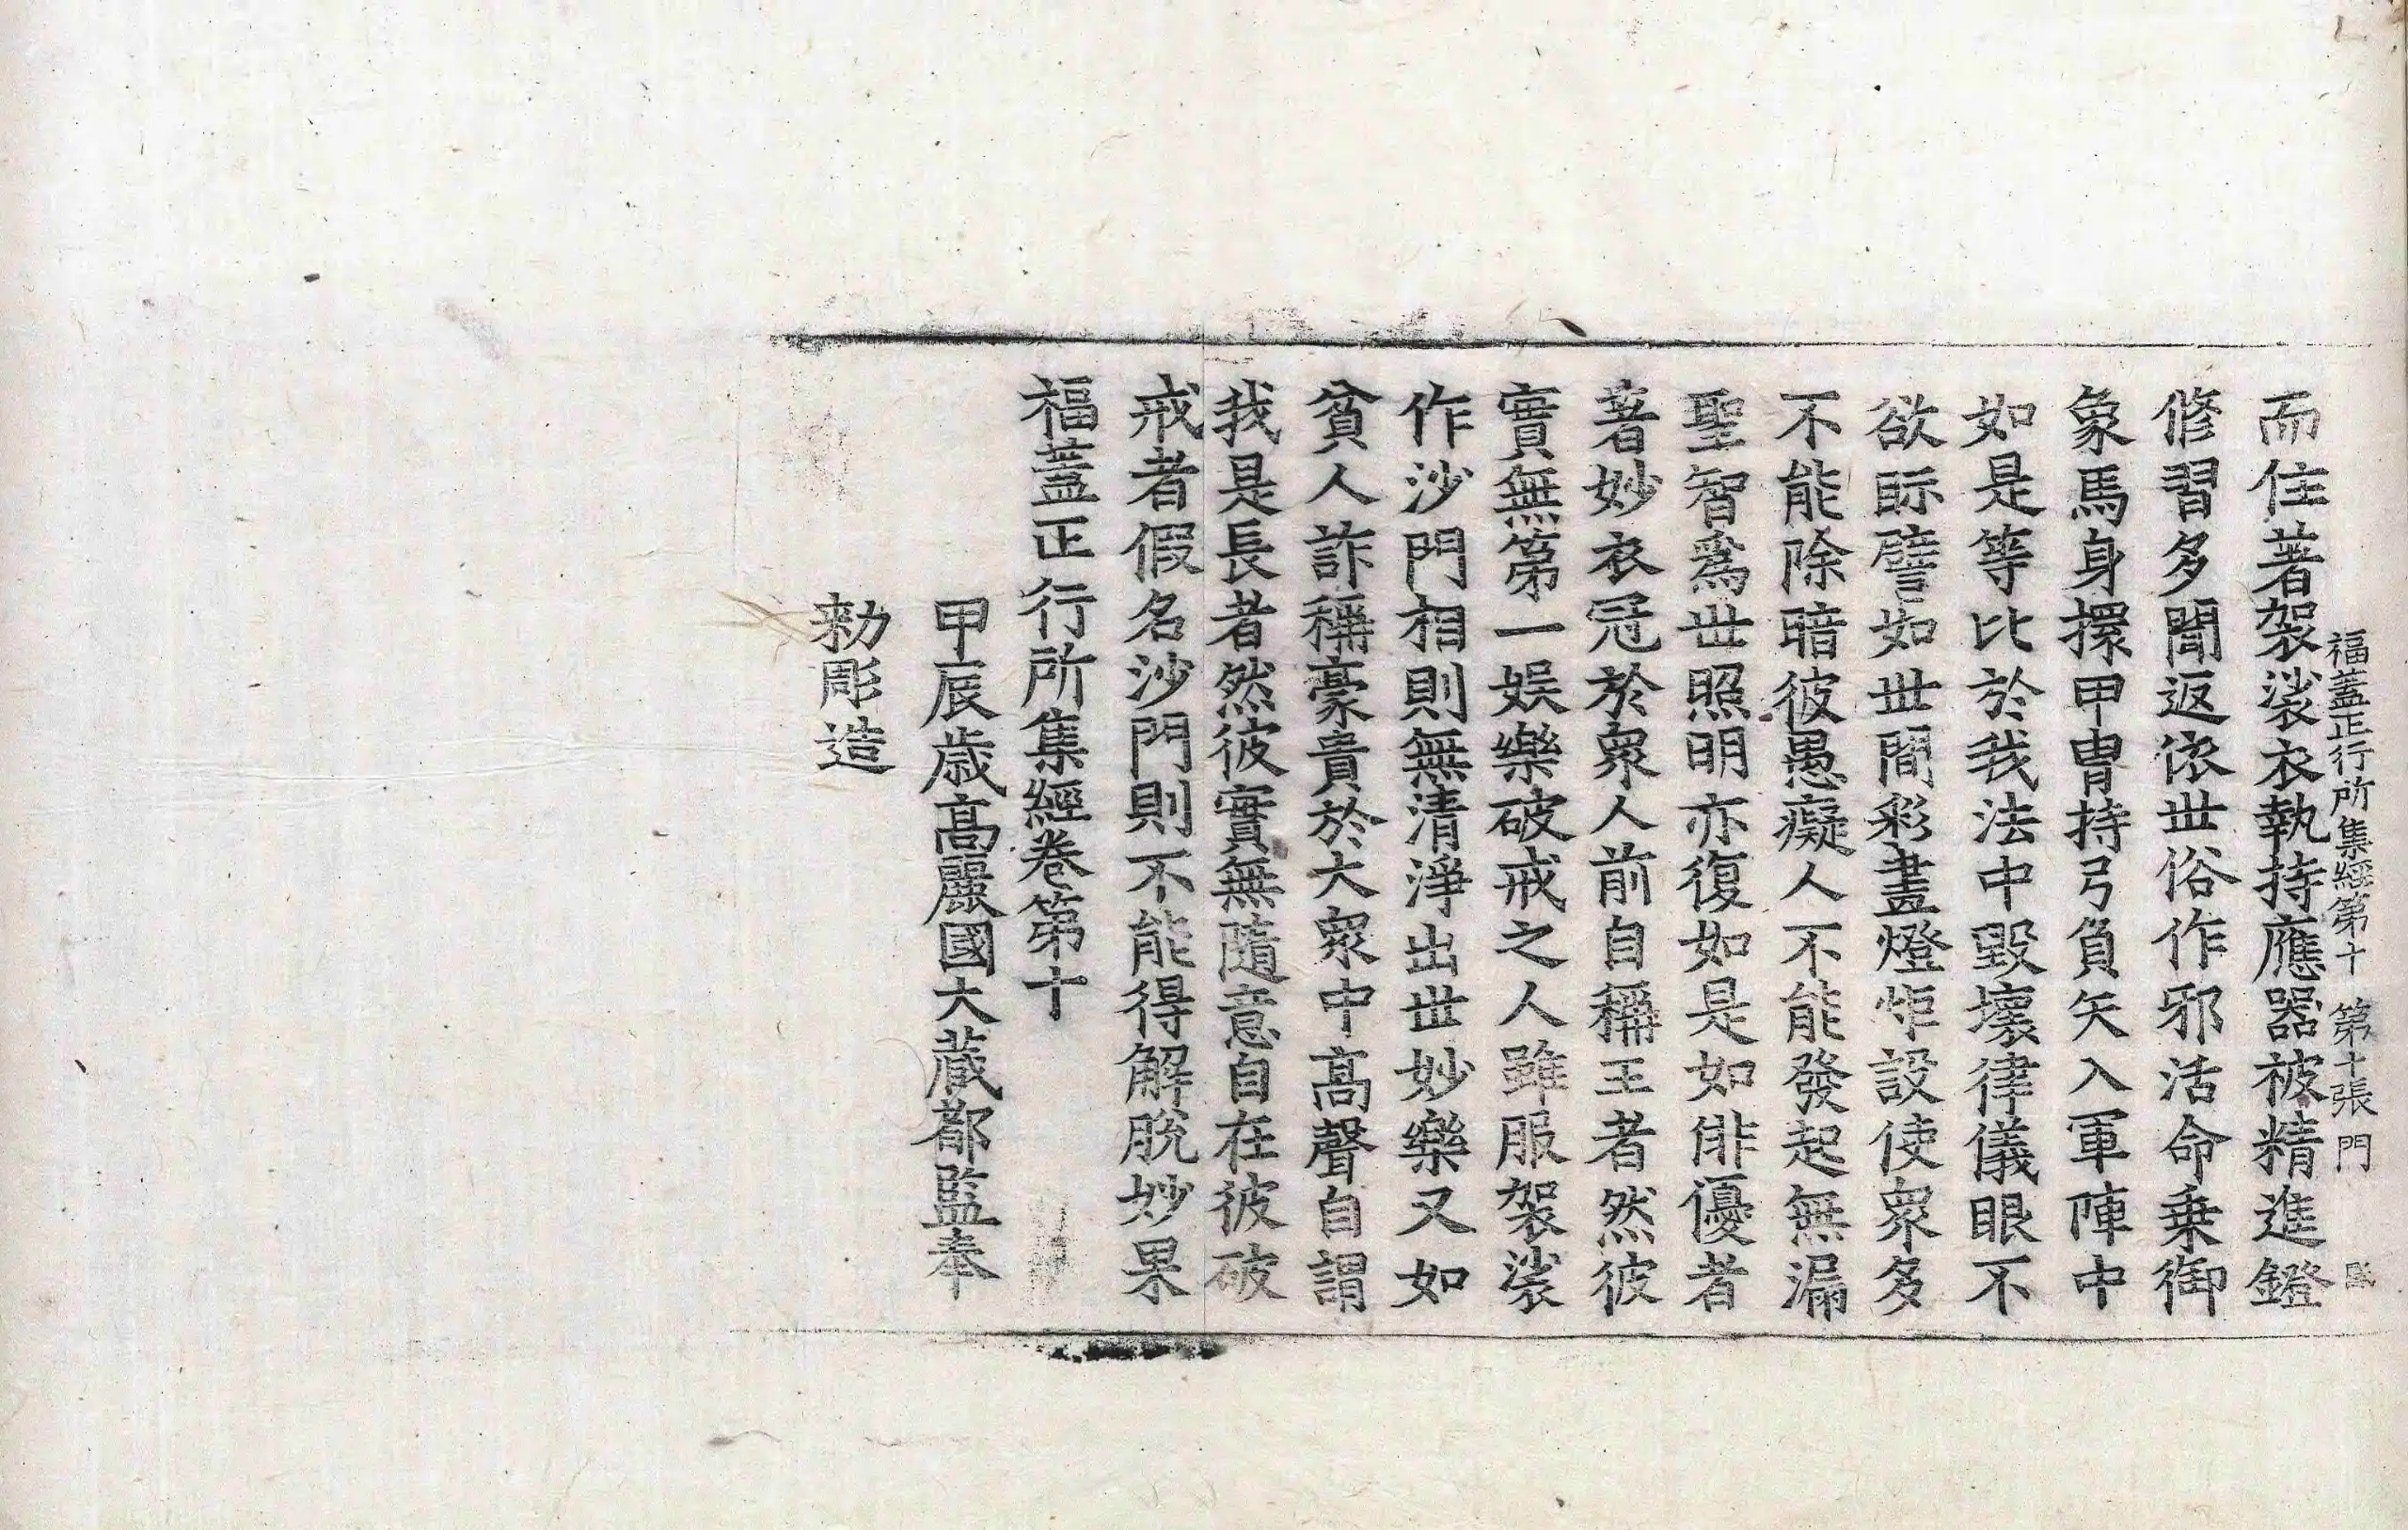 福蓋正行所集經第十 第十張 門
而住著袈裟衣執持應器被精進鎧
修習多聞返依世俗作邪活命乗御
象馬身擐甲冑持弓負矢入軍陣中
如是等比於我法中毀壞律儀眼不
欲眎譬如世間彩畫燈炬設使衆多
不能除暗彼愚癡人不能發起無漏
聖智爲世照明亦復如是如俳優者
著妙衣冠於衆人前自稱王者然彼
實無第一娛樂破戒之人雖服袈裟
作沙門相則無清淨出世妙樂又如
貧人詐稱豪貴於大衆中高聲自謂
我是長者然彼實無隨意自在彼破
戒者假名沙門則不能得解脫妙果
福蓋正行所集經卷第十
甲辰歳高麗國大藏都監奉
勅彫造